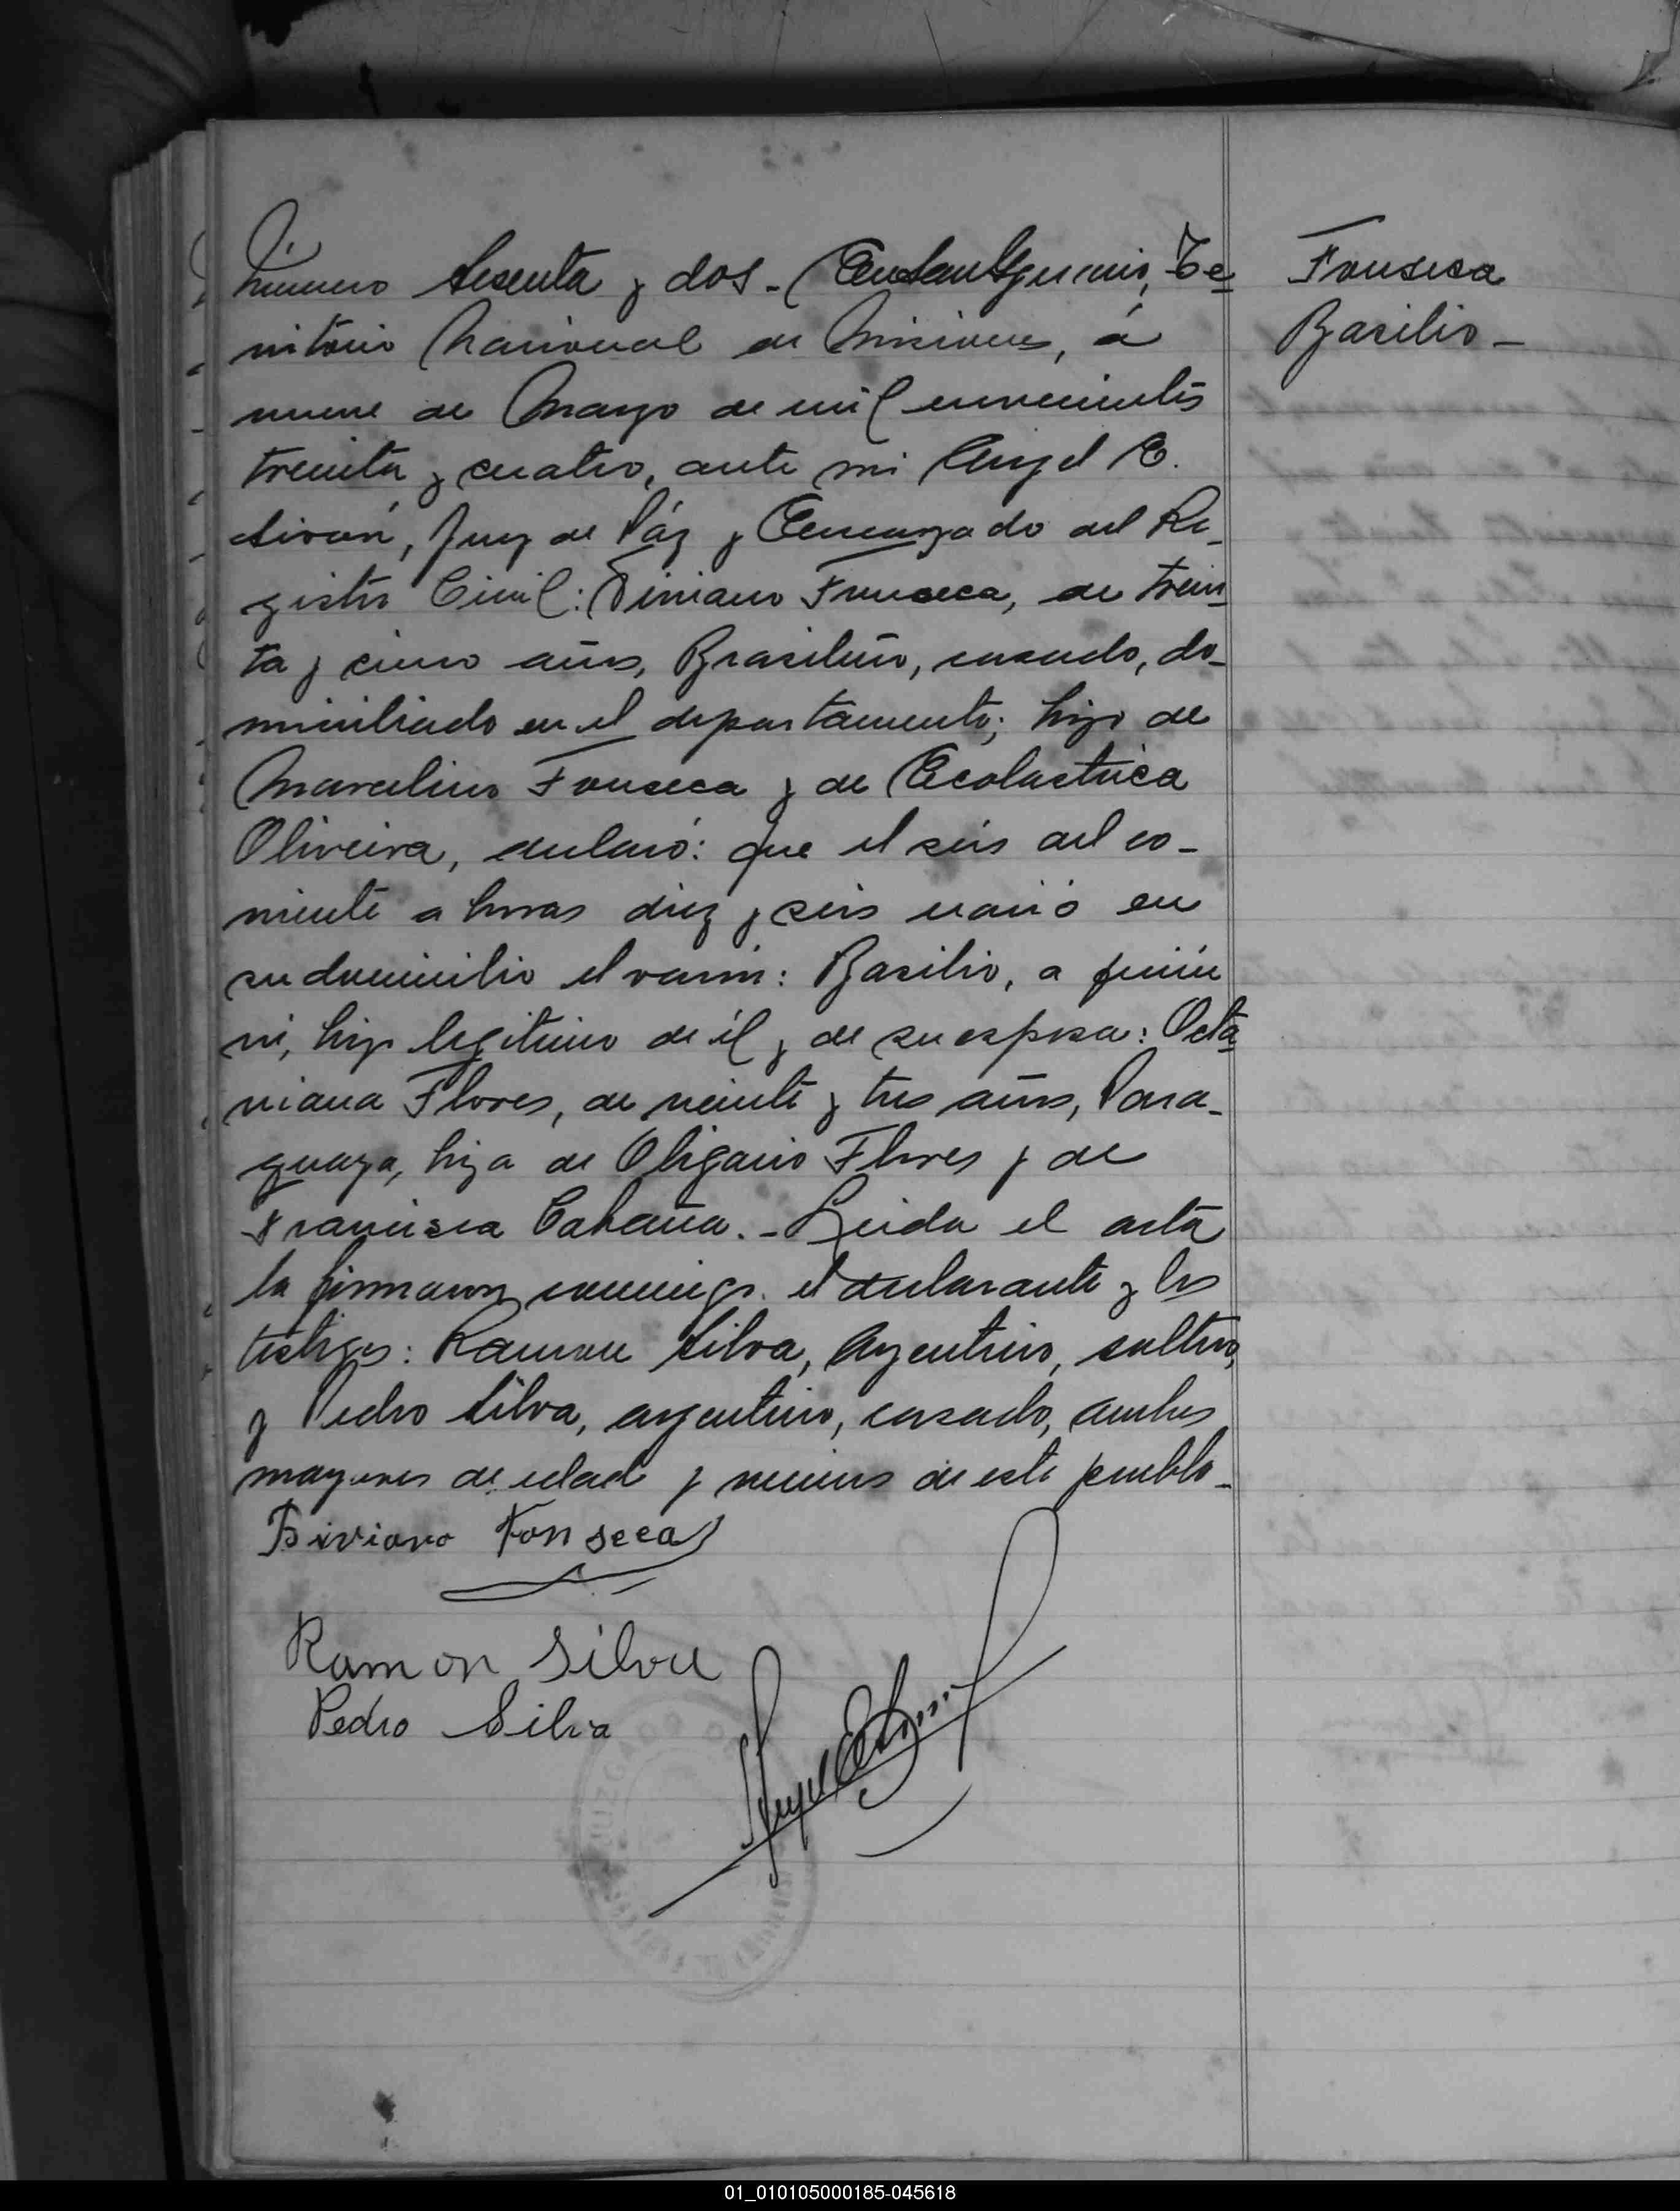 Número Sesenta y dos - En San Ygnacio, Te-
rritorio Nacional de Misiones, á
nueve de Marzo de mil novecientos
treinta y cuatro, ante mi Angel E.
Juez de Páz y Encargado del Re-
gistro Civil: Viviano Fonseca, de trein-
ta y cinco años, Brasileño, casado, do-
miciliado en el departamento; hijo de
Marcelino Fonseca y de Ecolastica
Oliveira, declaró: que el seis del co-
rriente a horas diez y seis nació en
su domicilio el varon: Basilio, a quién
ví, hijo legitimo de él y de su esposa: Octa-
viana Flores, de veinte y tres años, Para-
guaya, hija de Oligario Flores y de
Francisca Cabaña. - Leida el acta
la firmaron conmigo el declarante y los
testigos: Ramon Silva, Argentino, soltero,
y Pedro Silva, argentino, casado, ambos
mayores de edad y vecinos de este pueblo -
Fonseca
Basilio -
Biviano Fonseca
Ramon Silva
Pedro Silva
JUZGADO D
01_010105000185-045618